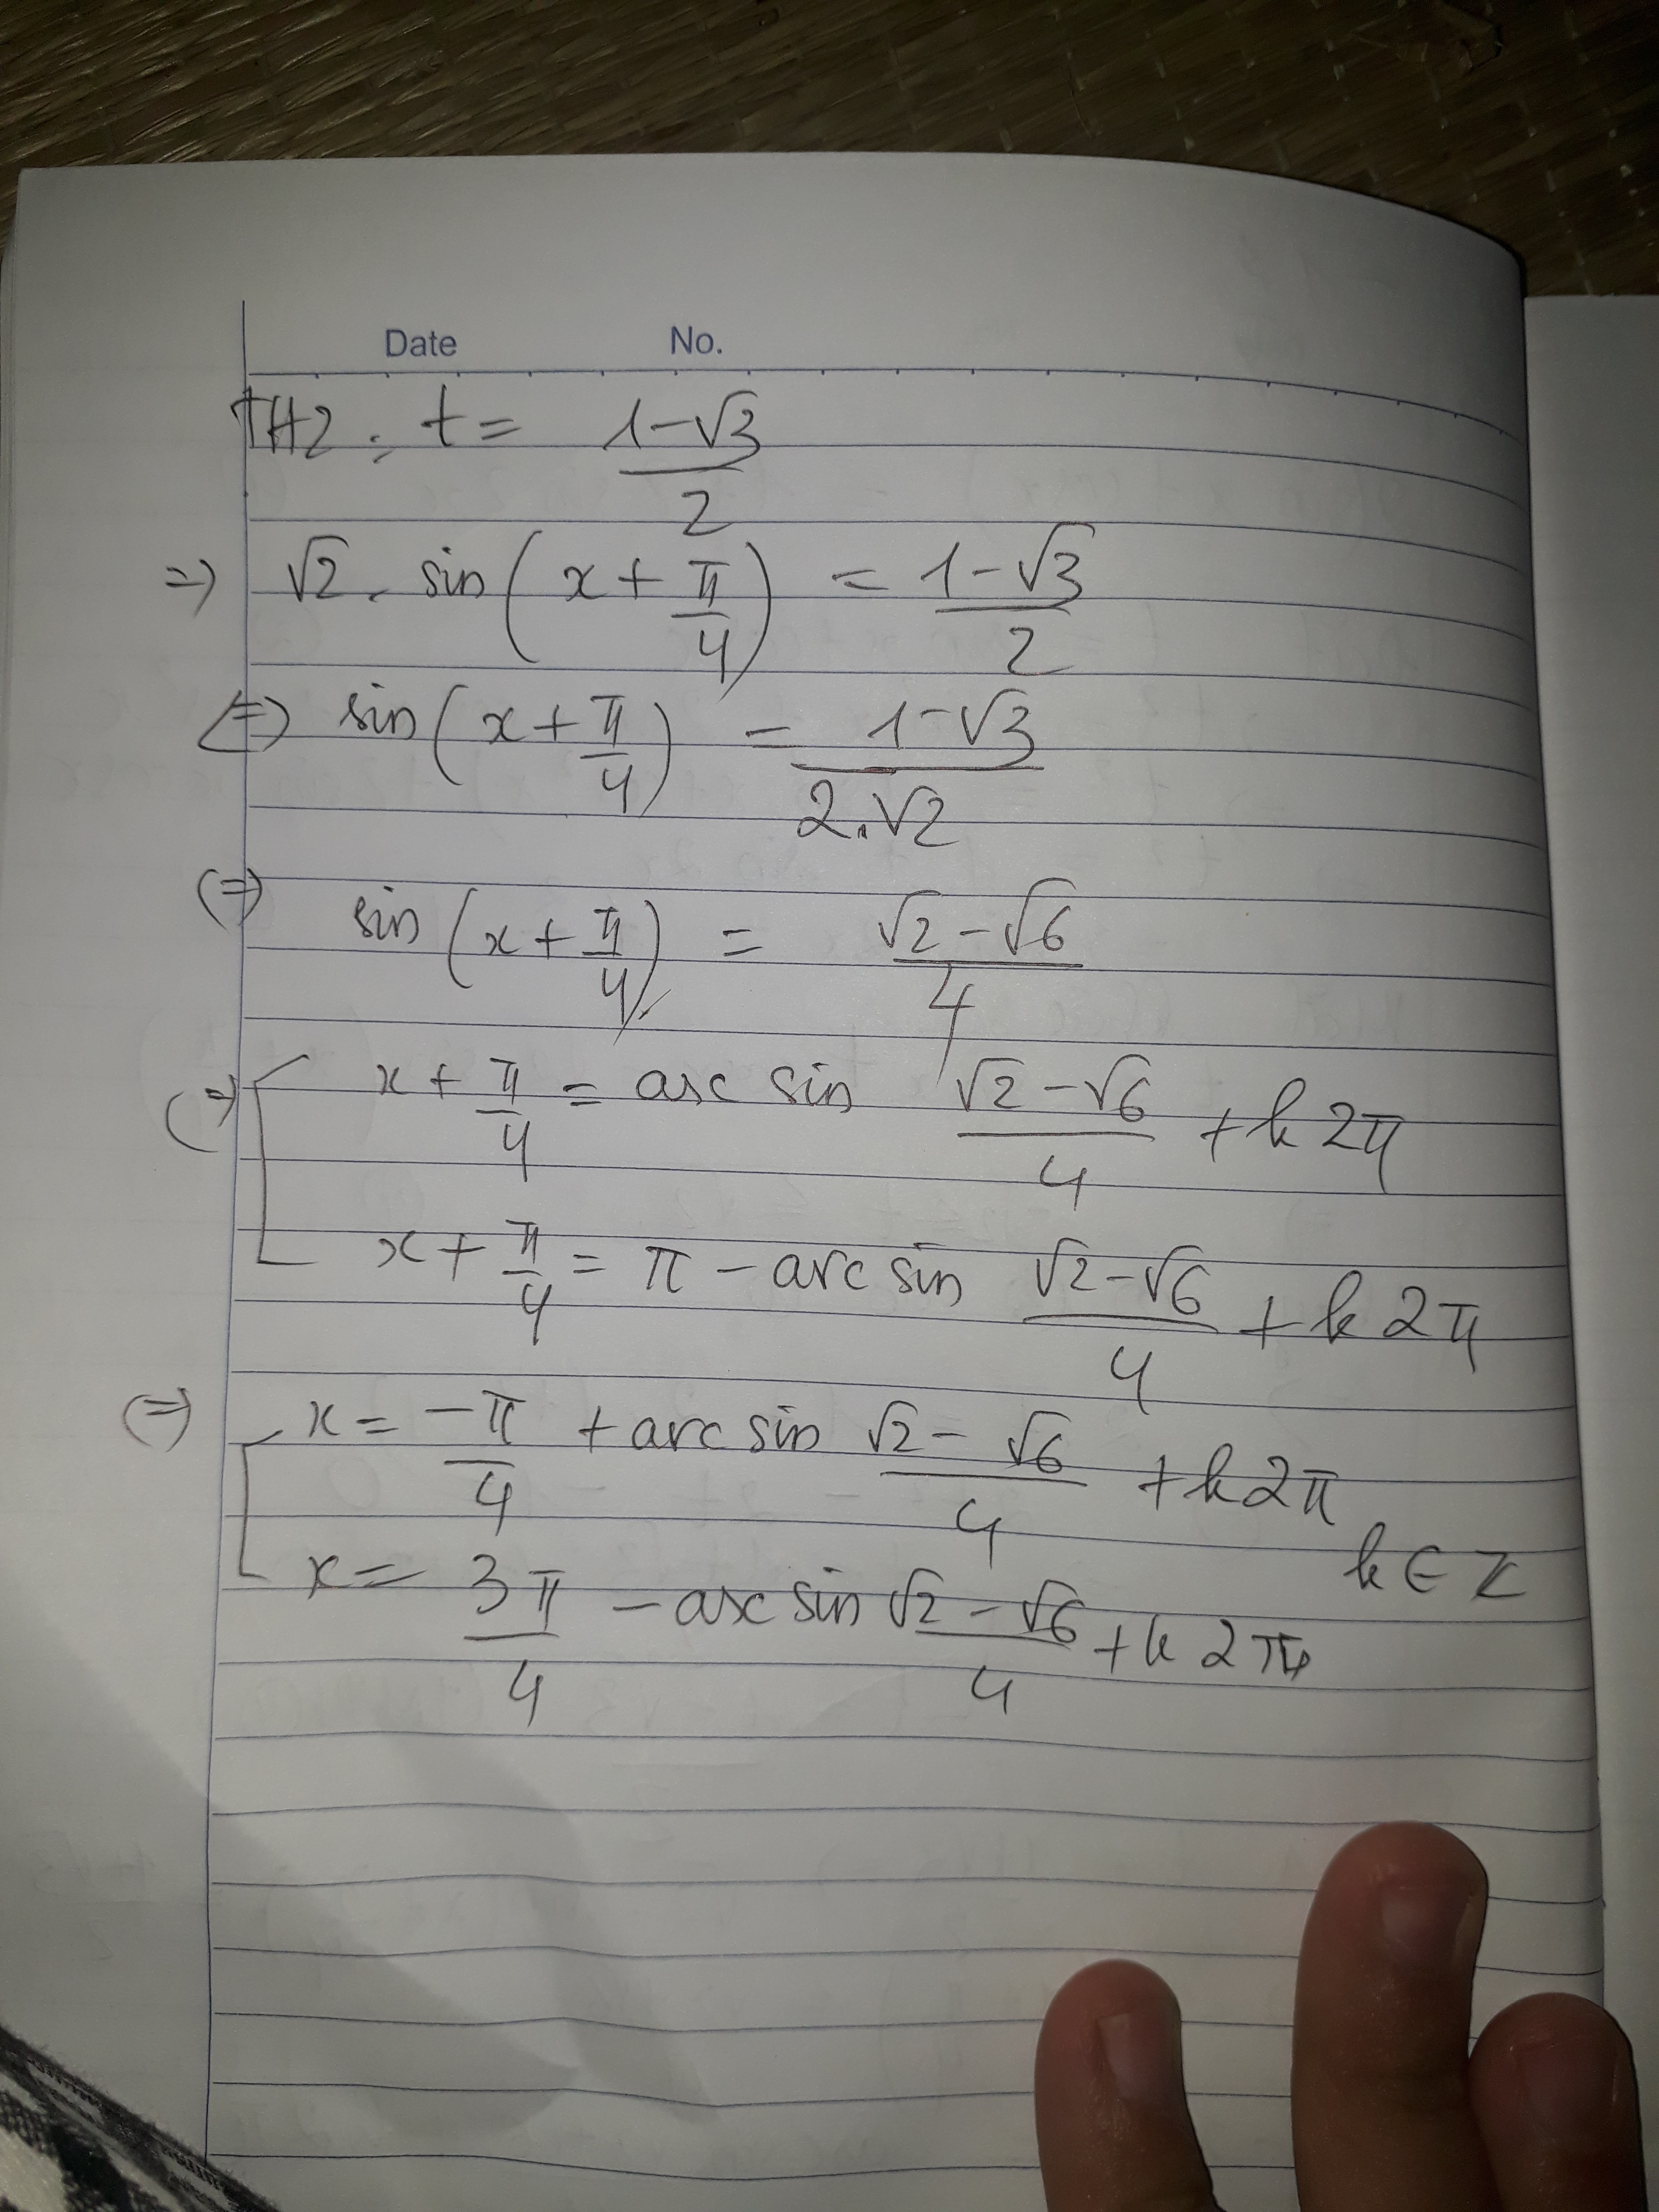 Date No.
TH2: t = (1-√3)/2
=> √2 . sin(x + π/4) = (1-√3)/2
(=) sin(x + π/4) = (1-√3)/(2.√2)
(=) sin(x + π/4) = (√2-√6)/4
(=) [ x + π/4 = arc sin (√2-√6)/4 + k2π
x + π/4 = π - arc sin (√2-√6)/4 + k2π
(=) [ x = -π/4 + arc sin (√2-√6)/4 + k2π
k ∈ Z
x = 3π/4 - arc sin (√2-√6)/4 + k2π